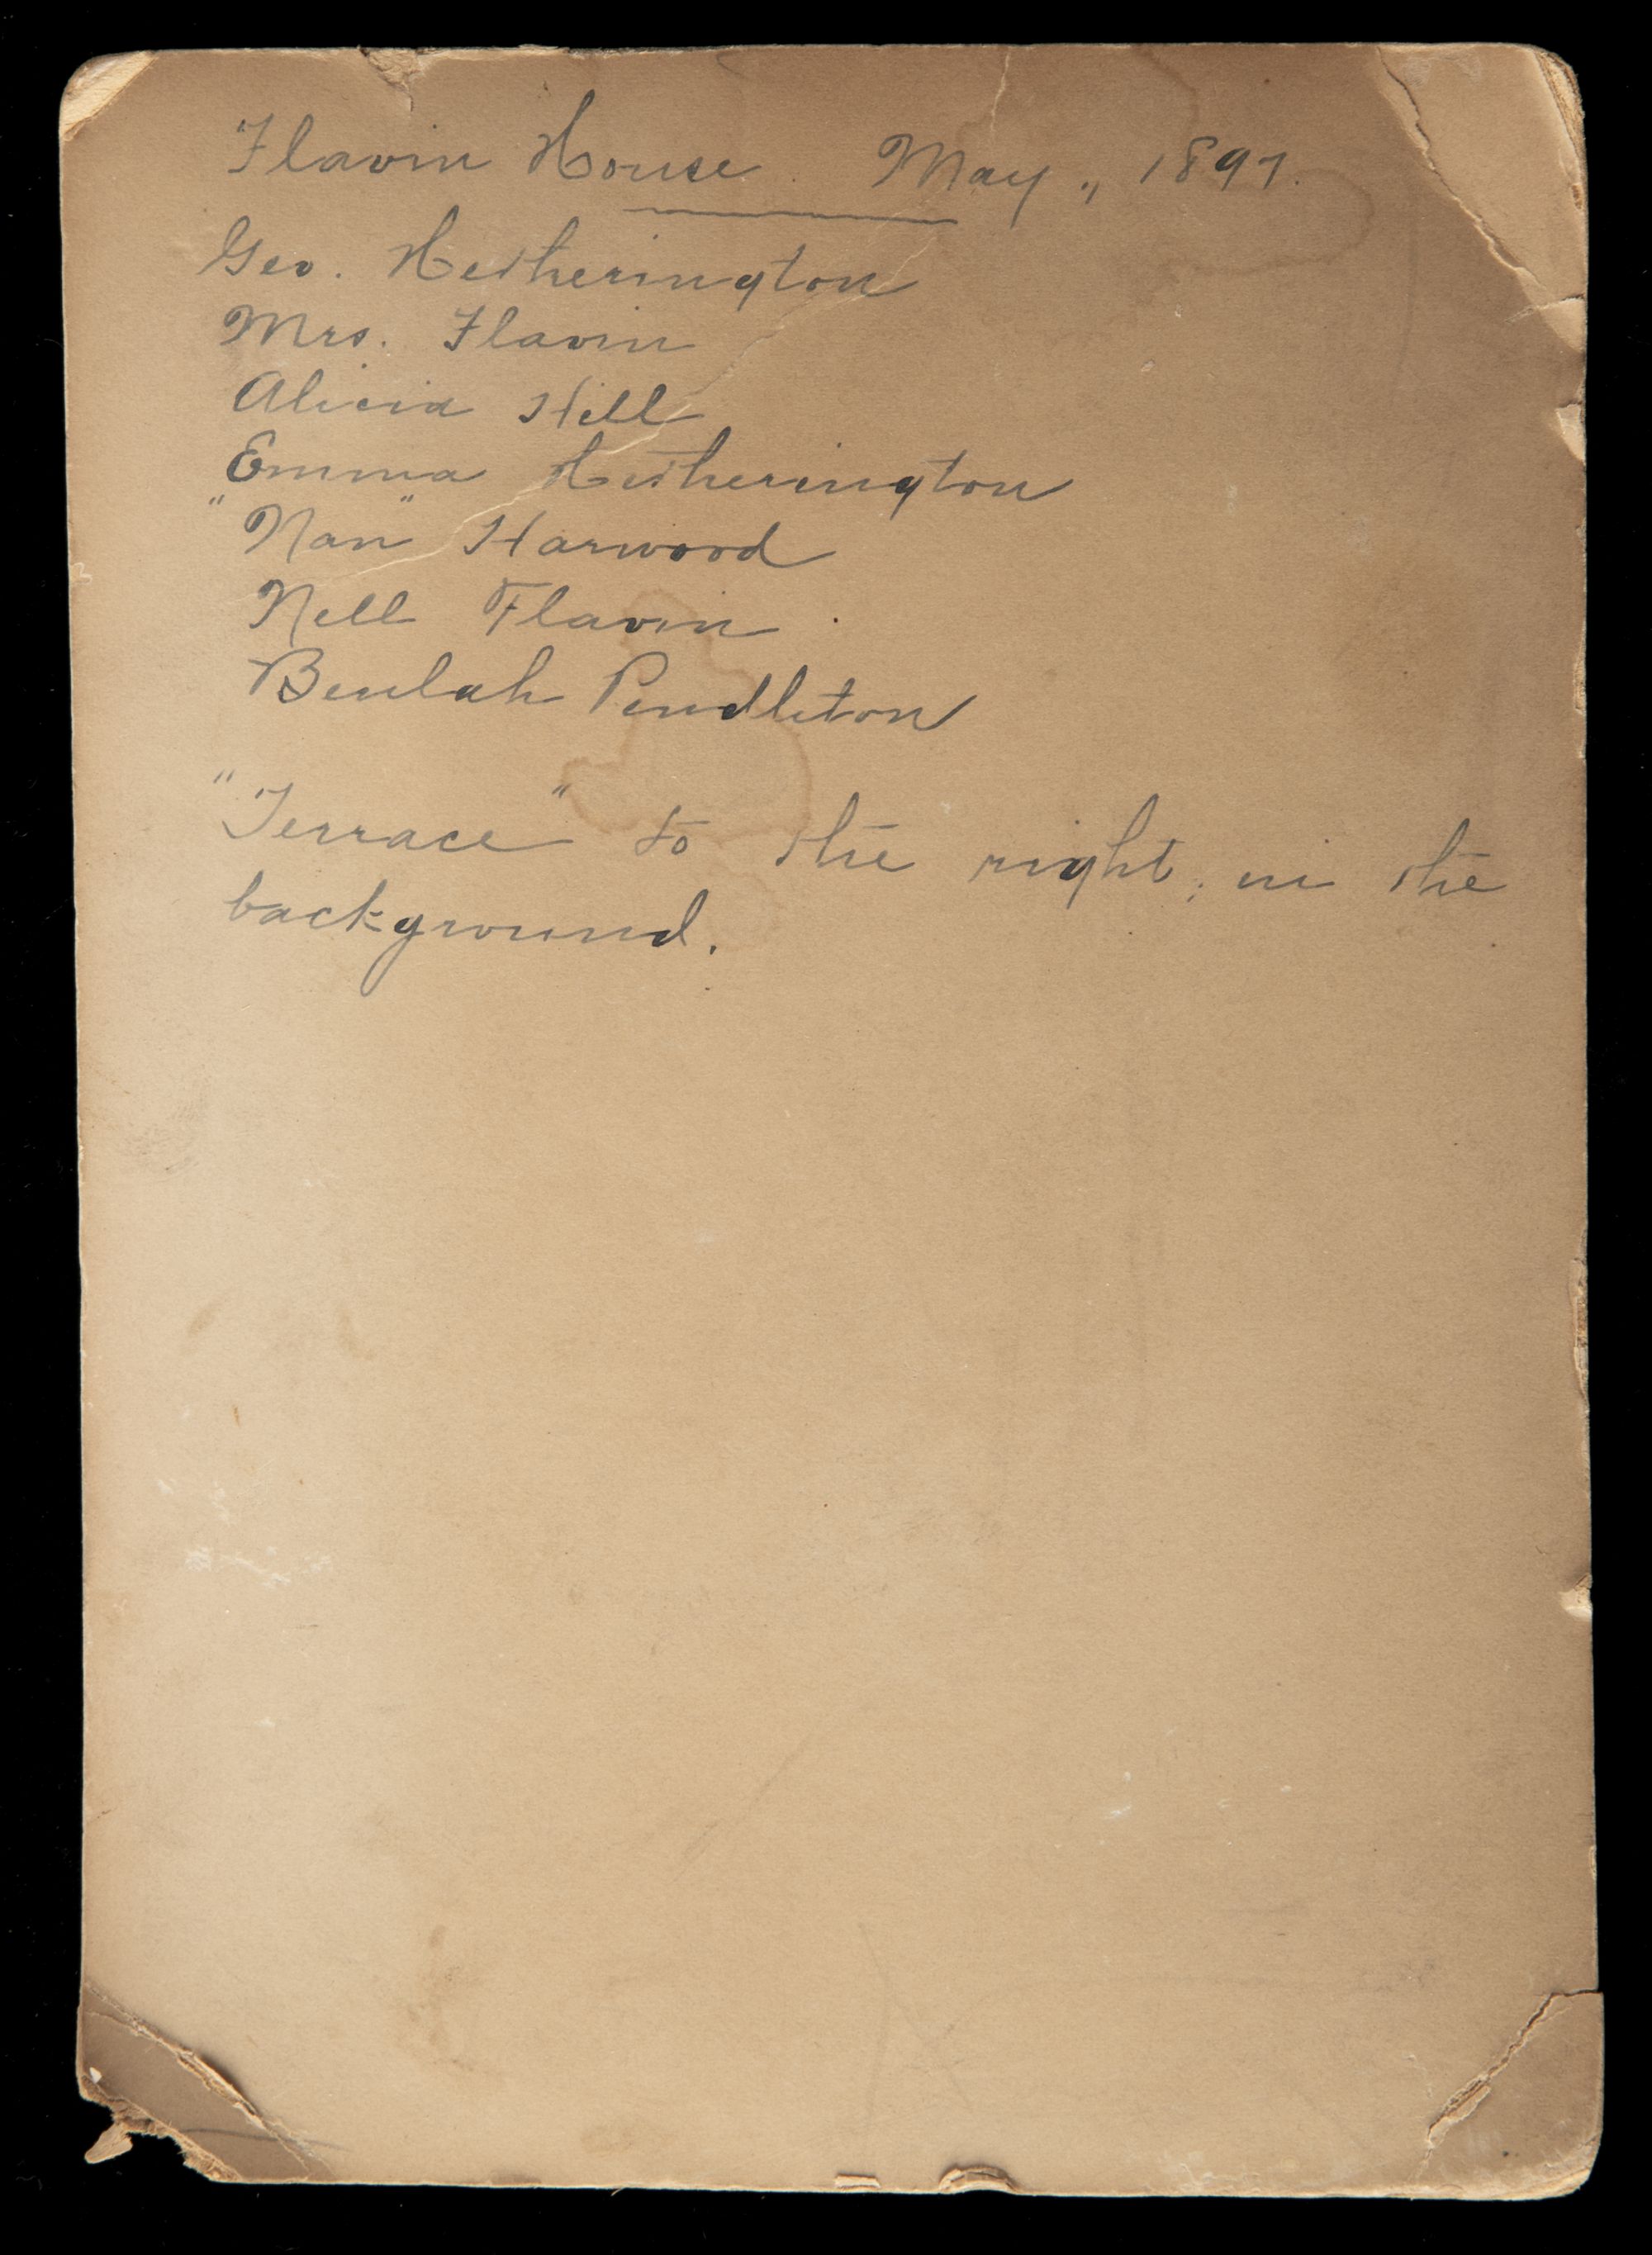 Flavin House. May, 1897.
Geo. Hetherington
Mrs. Flavin
Alicia Hill
Emma Hetherington
"Nan" Harwood
Nell Flavin.
Beulah Pendleton
"Terrace" to the right, in the
background.